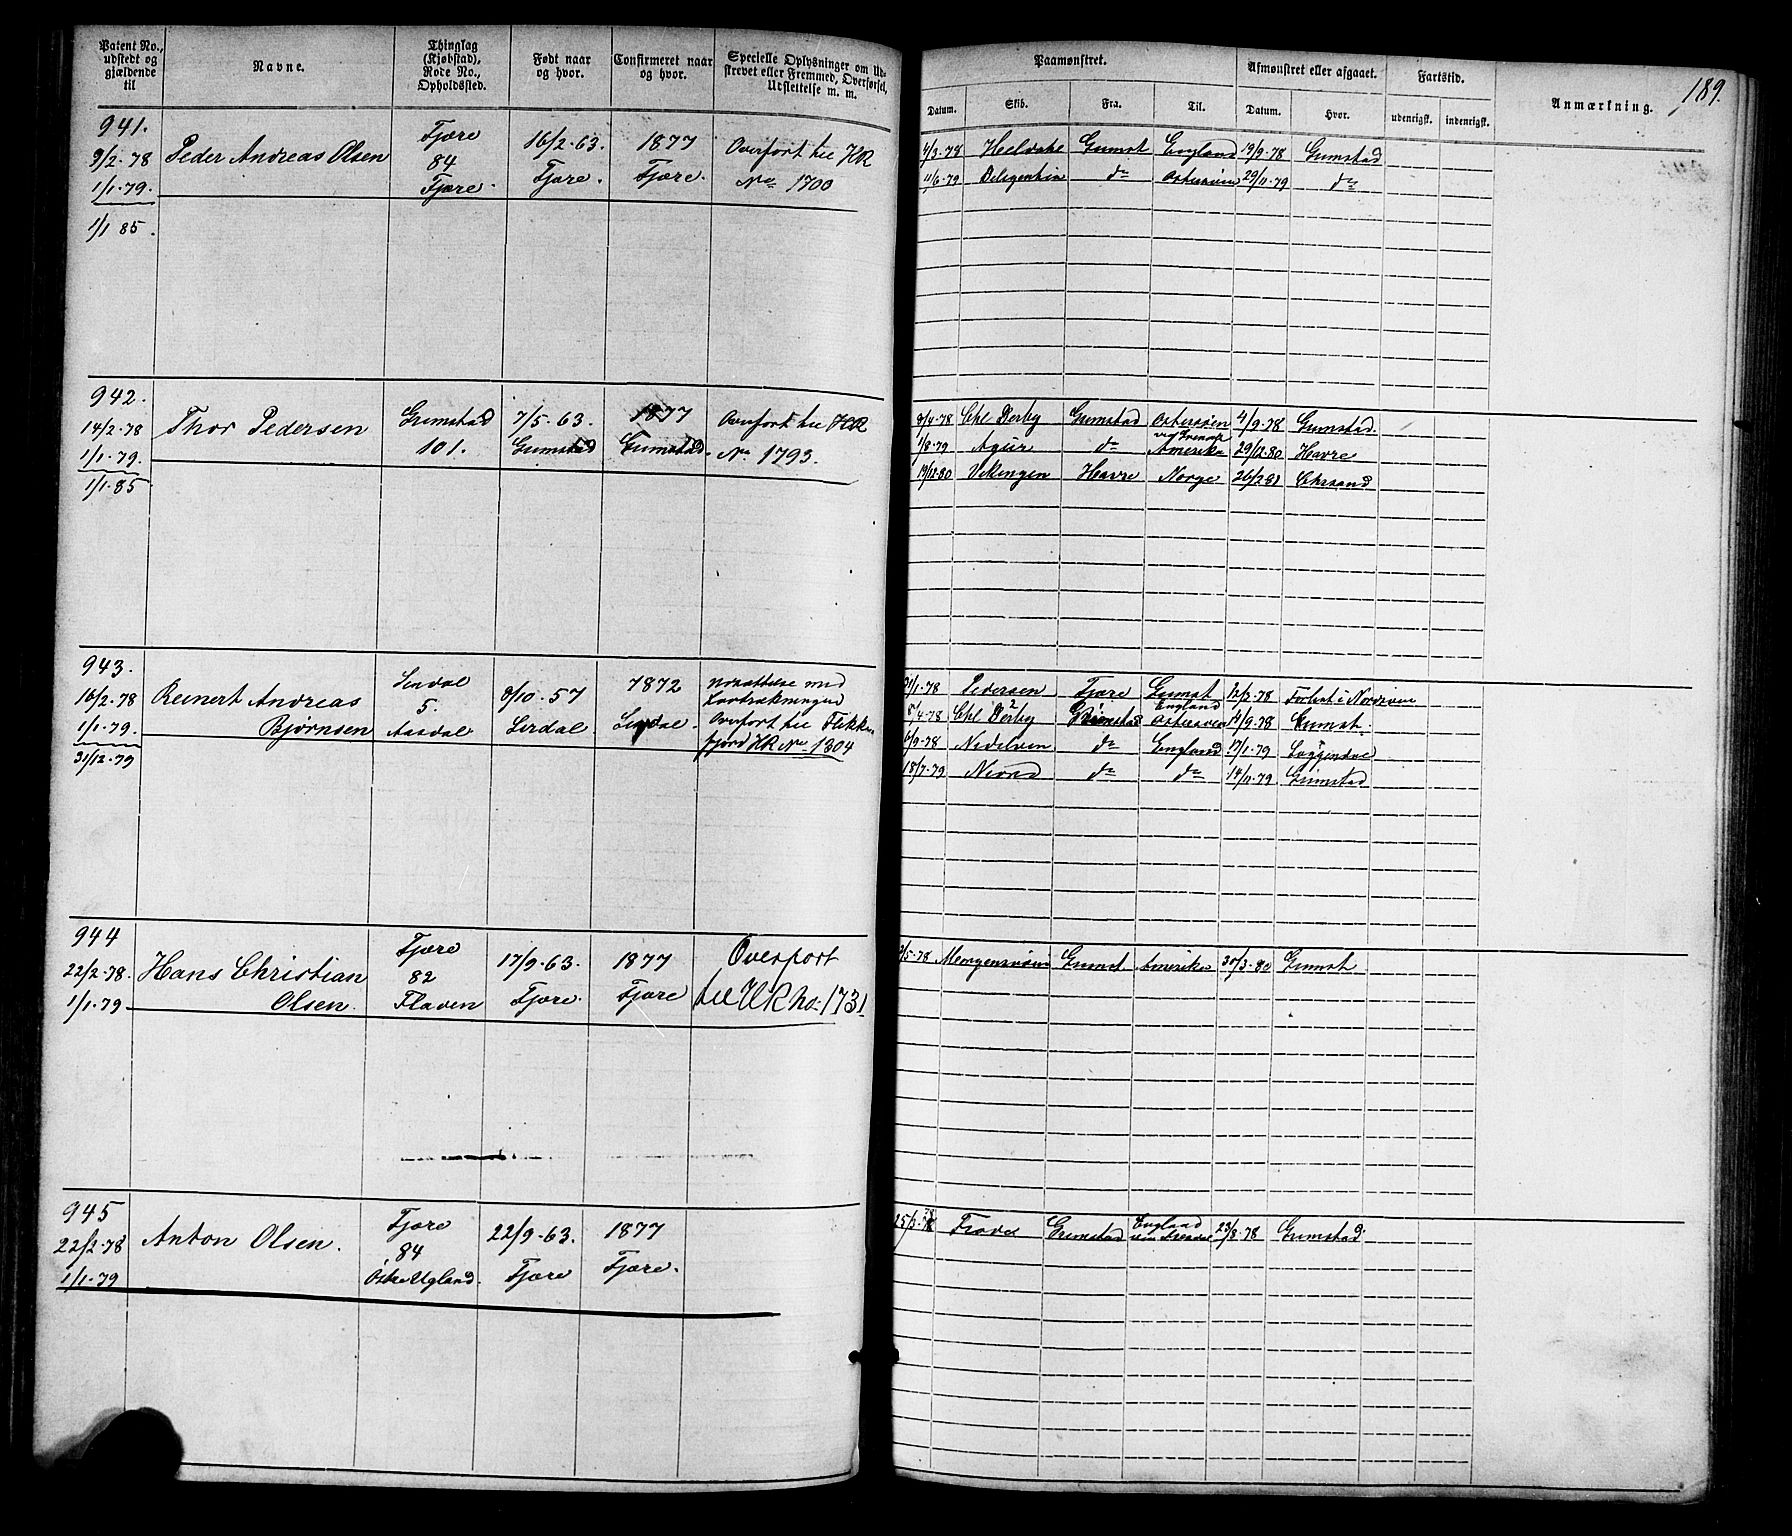 Patent No., udstedt og gjældende til
Navne.
Thinglag (Kjøbstad), Rode No., Opholdssted.
Født naar og hvor.
Confirmeret naar og hvor.
Specielle Oplysninger om Udskrevet eller Fremmed, Overførsel, Udslettelse m. m.
Paamønstret.
Datum.
Skib.
Fra.
Til.
Afmønstret eller afgaaet.
Datum.
Hvor.
Fartstid.
udenrigst.
indenrigst.
Anmærkning.
189.
941.
9/2-78
1/1-79.
1/1 85.
Peder Andreas Olsen
Fjære
84
Fjære.
16/2-63.
Fjære.
1877
Fjære.
Overført til HR
No 1700
4/3-78 Grimst England 19/9-78 Grimstad
11/6-79 do 29/11-79 do
942.
14/2-78
1/1-79.
1/1-85
Thor Pedersen
Grimstad
101.
7/5-63.
Grimstad
1877
Grimstad.
Overført til HR
No 1793.
8/4-78 Chl Derby Grimstad Østersøen 4/9-78 Grimstad.
1/8-79 do Amerika 29/12-80 Havre
19/12-80 Vikingen Havre Norge 26/2-81 Chrsand
943.
16/2-78
1/1-79.
31/12-79
Reinert Andreas
Bjørnsen
5.
Aasdal
8/10-57
Lirdal
1872
Lirdal
Overført til Flekke-
fjord HR No 1304
31/1-78 Pedersen Fjære Grimst 12/3-78 Forlist i Nordsøen
8/4-78 Chl Derby Grimstad England Østersøen 14/9-78 Grimst.
6/9-78 do England 17/1-79
18/7-79 do do 14/11-79 Grimstad
944
22/2-78.
1/1-79
Hans Christian
Olsen.
Fjære
82
Flaven
17/9-63.
Fjære.
1877
Fjære
Overført
til HR no 1731
/5-78 Grimst Amerika 30/3-80 Grimst
945
22/2-78
1/1-79
Anton Olsen.
Fjære
84
Østre Ugland.
22/9-63.
Fjære
1877
Fjære.
25/3-78 Grimstad England 23/8-78 Grimstad.